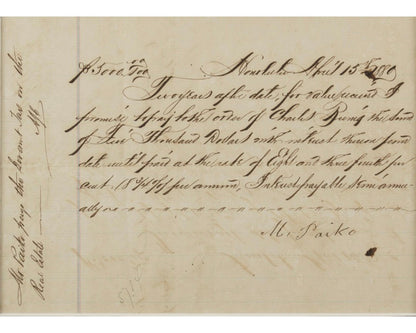 $5000 00/100 Honolulu April 15th
Two years after date, for value received I
promise to pay to the order of Charles the sum
of Five Thousand Dollars with interest thereon from
date until paid at the rate of Eight and three fourth per
cent (8 3/4 %) per annum. Interest payable Semi annu
ally
M. Paiko
pays the Government Tax on the
Real Estate